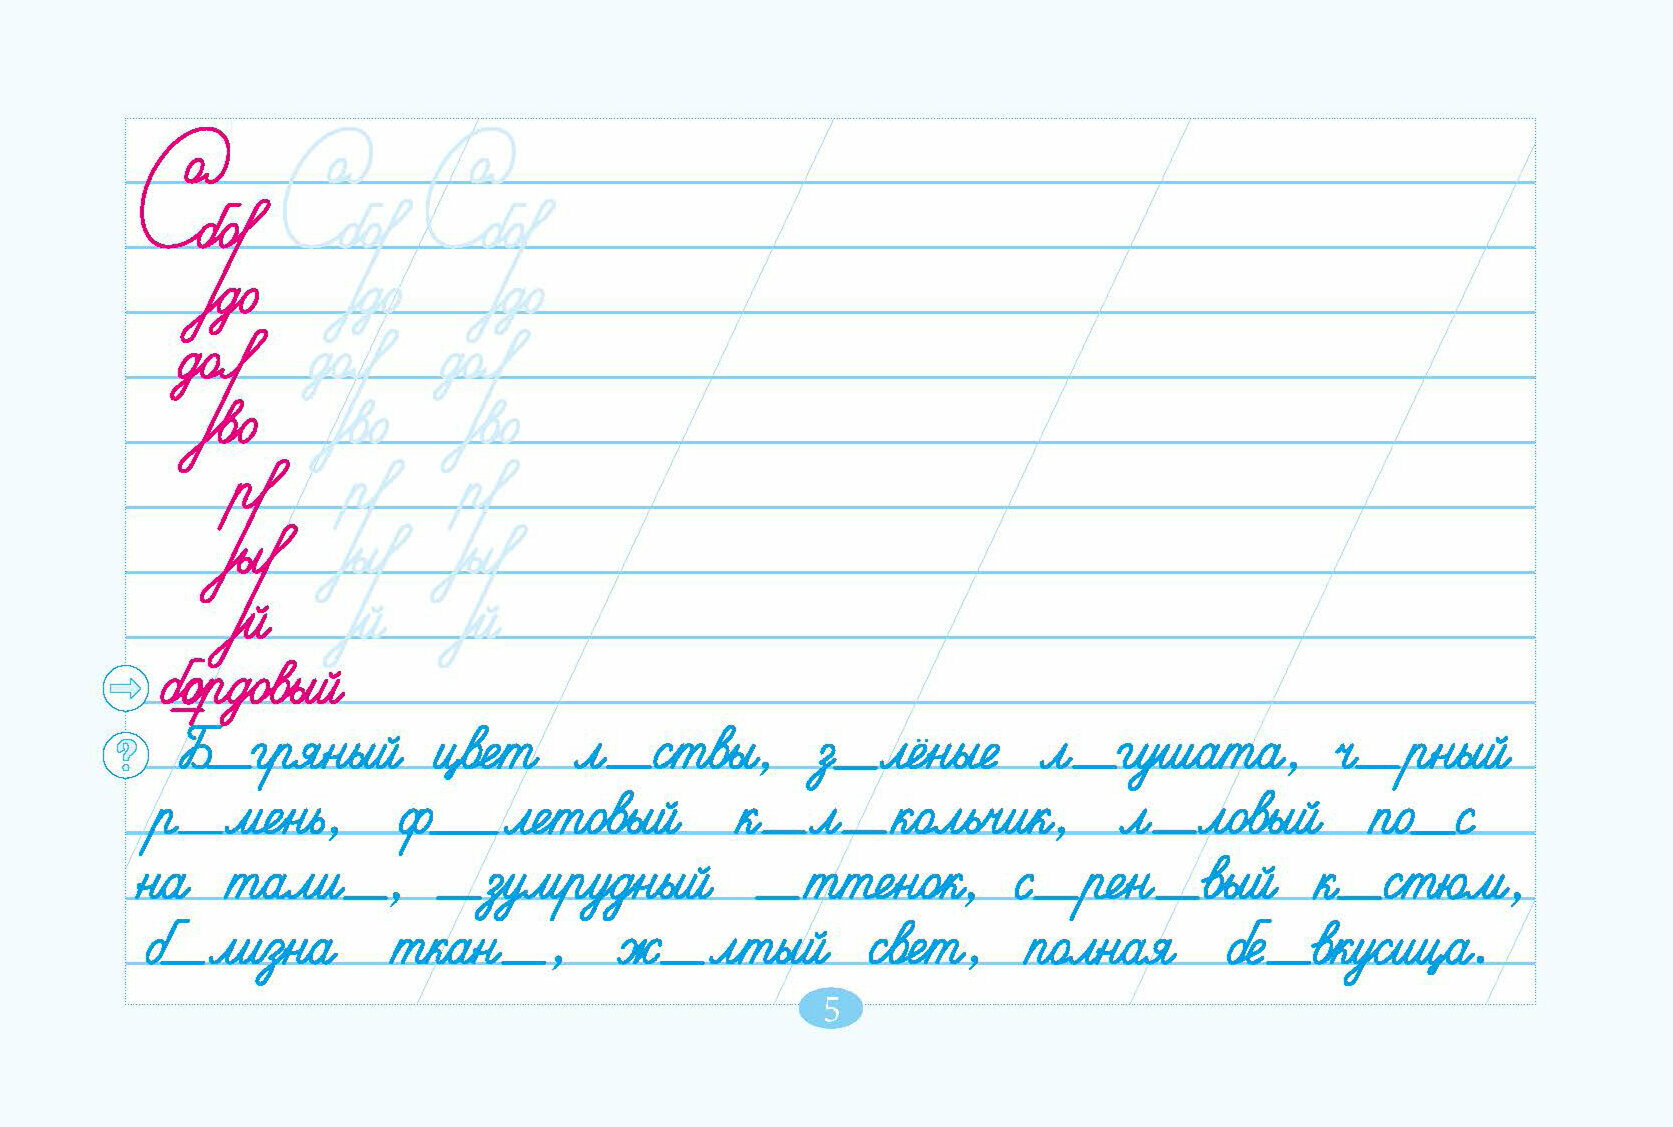 Са Са Са
бо₽ бо₽ бо₽
до до до
до₽ до₽ до₽
во во во
р р р
ы ы ы
й й й
бордовый
? Б_гряный цвет л_ствы, з_лёные л_гушата, ч_рный
р_мень, ф_летовый к_л_кольчик, л_ловый по_с
на тали_, _зумрудный _ттенок, с_рен_вый к_стюм,
б_лизна ткан_, ж_лтый свет, полная бе_вкусица.
5